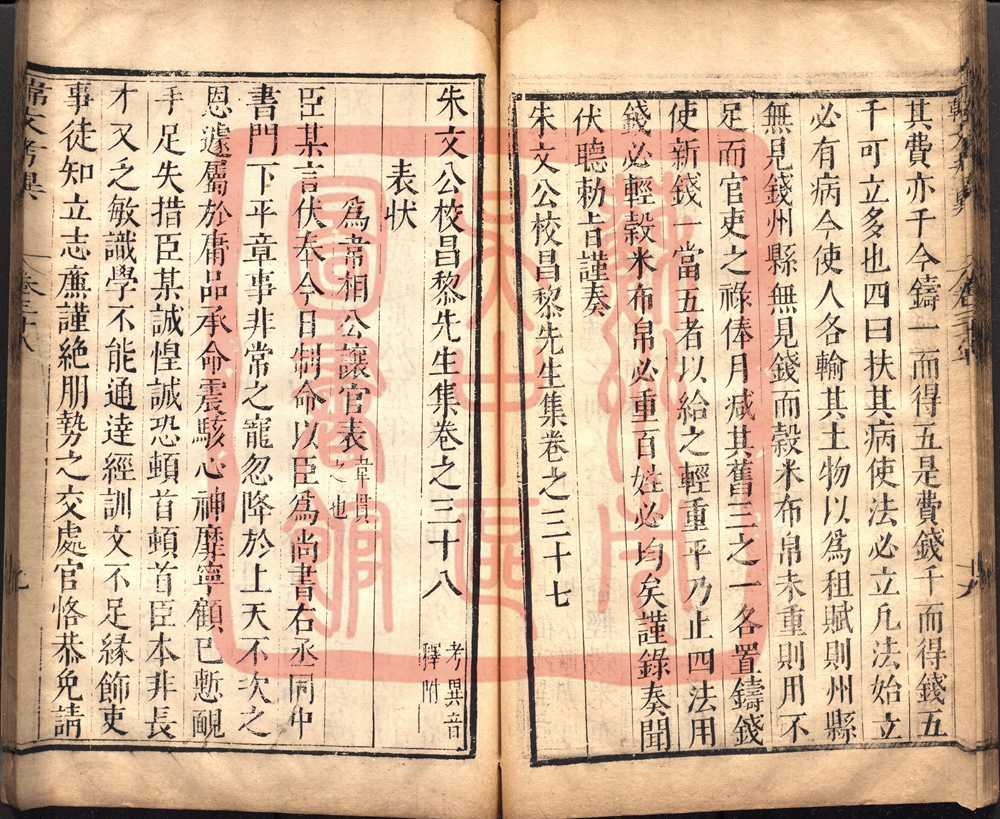 其費亦千今鑄一而得五是費錢千而得錢五
千可立多也四曰扶其病使法必立凡法始立
必有病今使人各輸其土物以爲租賦則州縣
無見錢州縣無見錢而穀米布帛未重則用不
足而官吏之祿俸月減其舊三之一各置鑄錢
使新錢一當五者以給之輕重平乃止四法用
錢必輕穀米布帛必重百姓必均矣謹錄奏聞
伏聽勑旨謹奏
朱文公校昌黎先生集卷之三十七
朱文公校昌黎先生集卷之三十八 考異音釋附
表状
爲韋相公讓官表 韋貫之也
臣某言伏奉今日制命以臣爲尚書右丞同中
書門下平章事非常之寵忽降於上天不次之
恩遽屬於庸品承命震駭心神靡寧顧已慙靦
手足失措臣某誠惶誠恐頓首頓首臣本非長
才又乏敏識學不能通達經訓文不足緣飾吏
事徒知立志廉謹絶朋勢之交處官恪恭免請
韓文考異 卷三十八 九